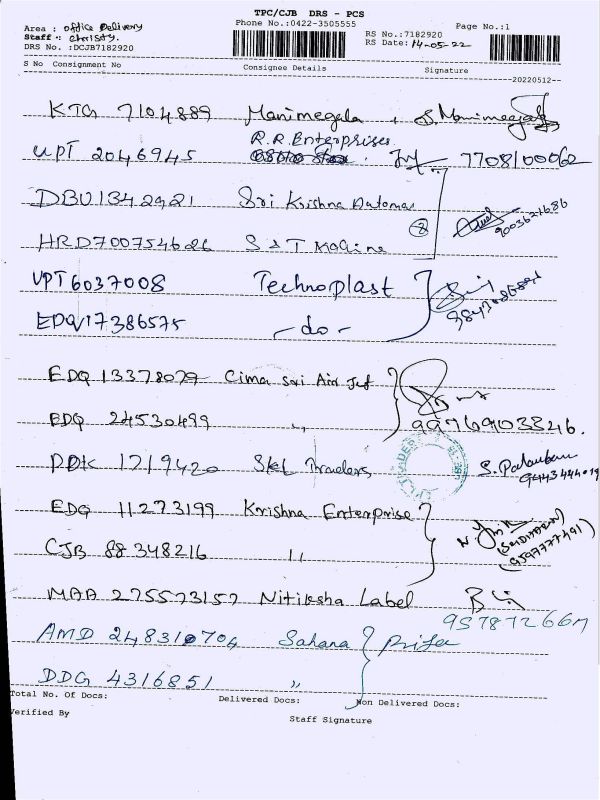 TPC/CJB DRS - PCS
Area : office Delivery Phone No.:0422-3505555 Page No.:1
Staff : Christy. RS No.:7182920
DRS No. :DCJB7182920 RS Date: 14-05-22
S No Consignment No Consignee Details Signature
20220512
KTG 7104889 Manimegala , S. Manimegala
R.R. Enterprises
UPT 2046945 7708100062
DBU1342921 Sri Krishna Automas
HRD700754626 S & T Macine 2 9003621686
UPT6037008 Technoplast
EDQ17386575 - do -
EDQ 13378079 Cima Sri Air Jet
EDQ 24530499 ,, 9976903326.
PDK 1719420 Skl Traders, 9443444019
EDQ 11273199 Krishna Enterprise
CJB 88348216 ,, 9597777491
MAA 275573157 Nitiksha Label
AMD 248310704 Sahana Priya
DDG 4316851 ,,
Total No. Of Docs: Delivered Docs: Non Delivered Docs:
Verified By Staff Signature